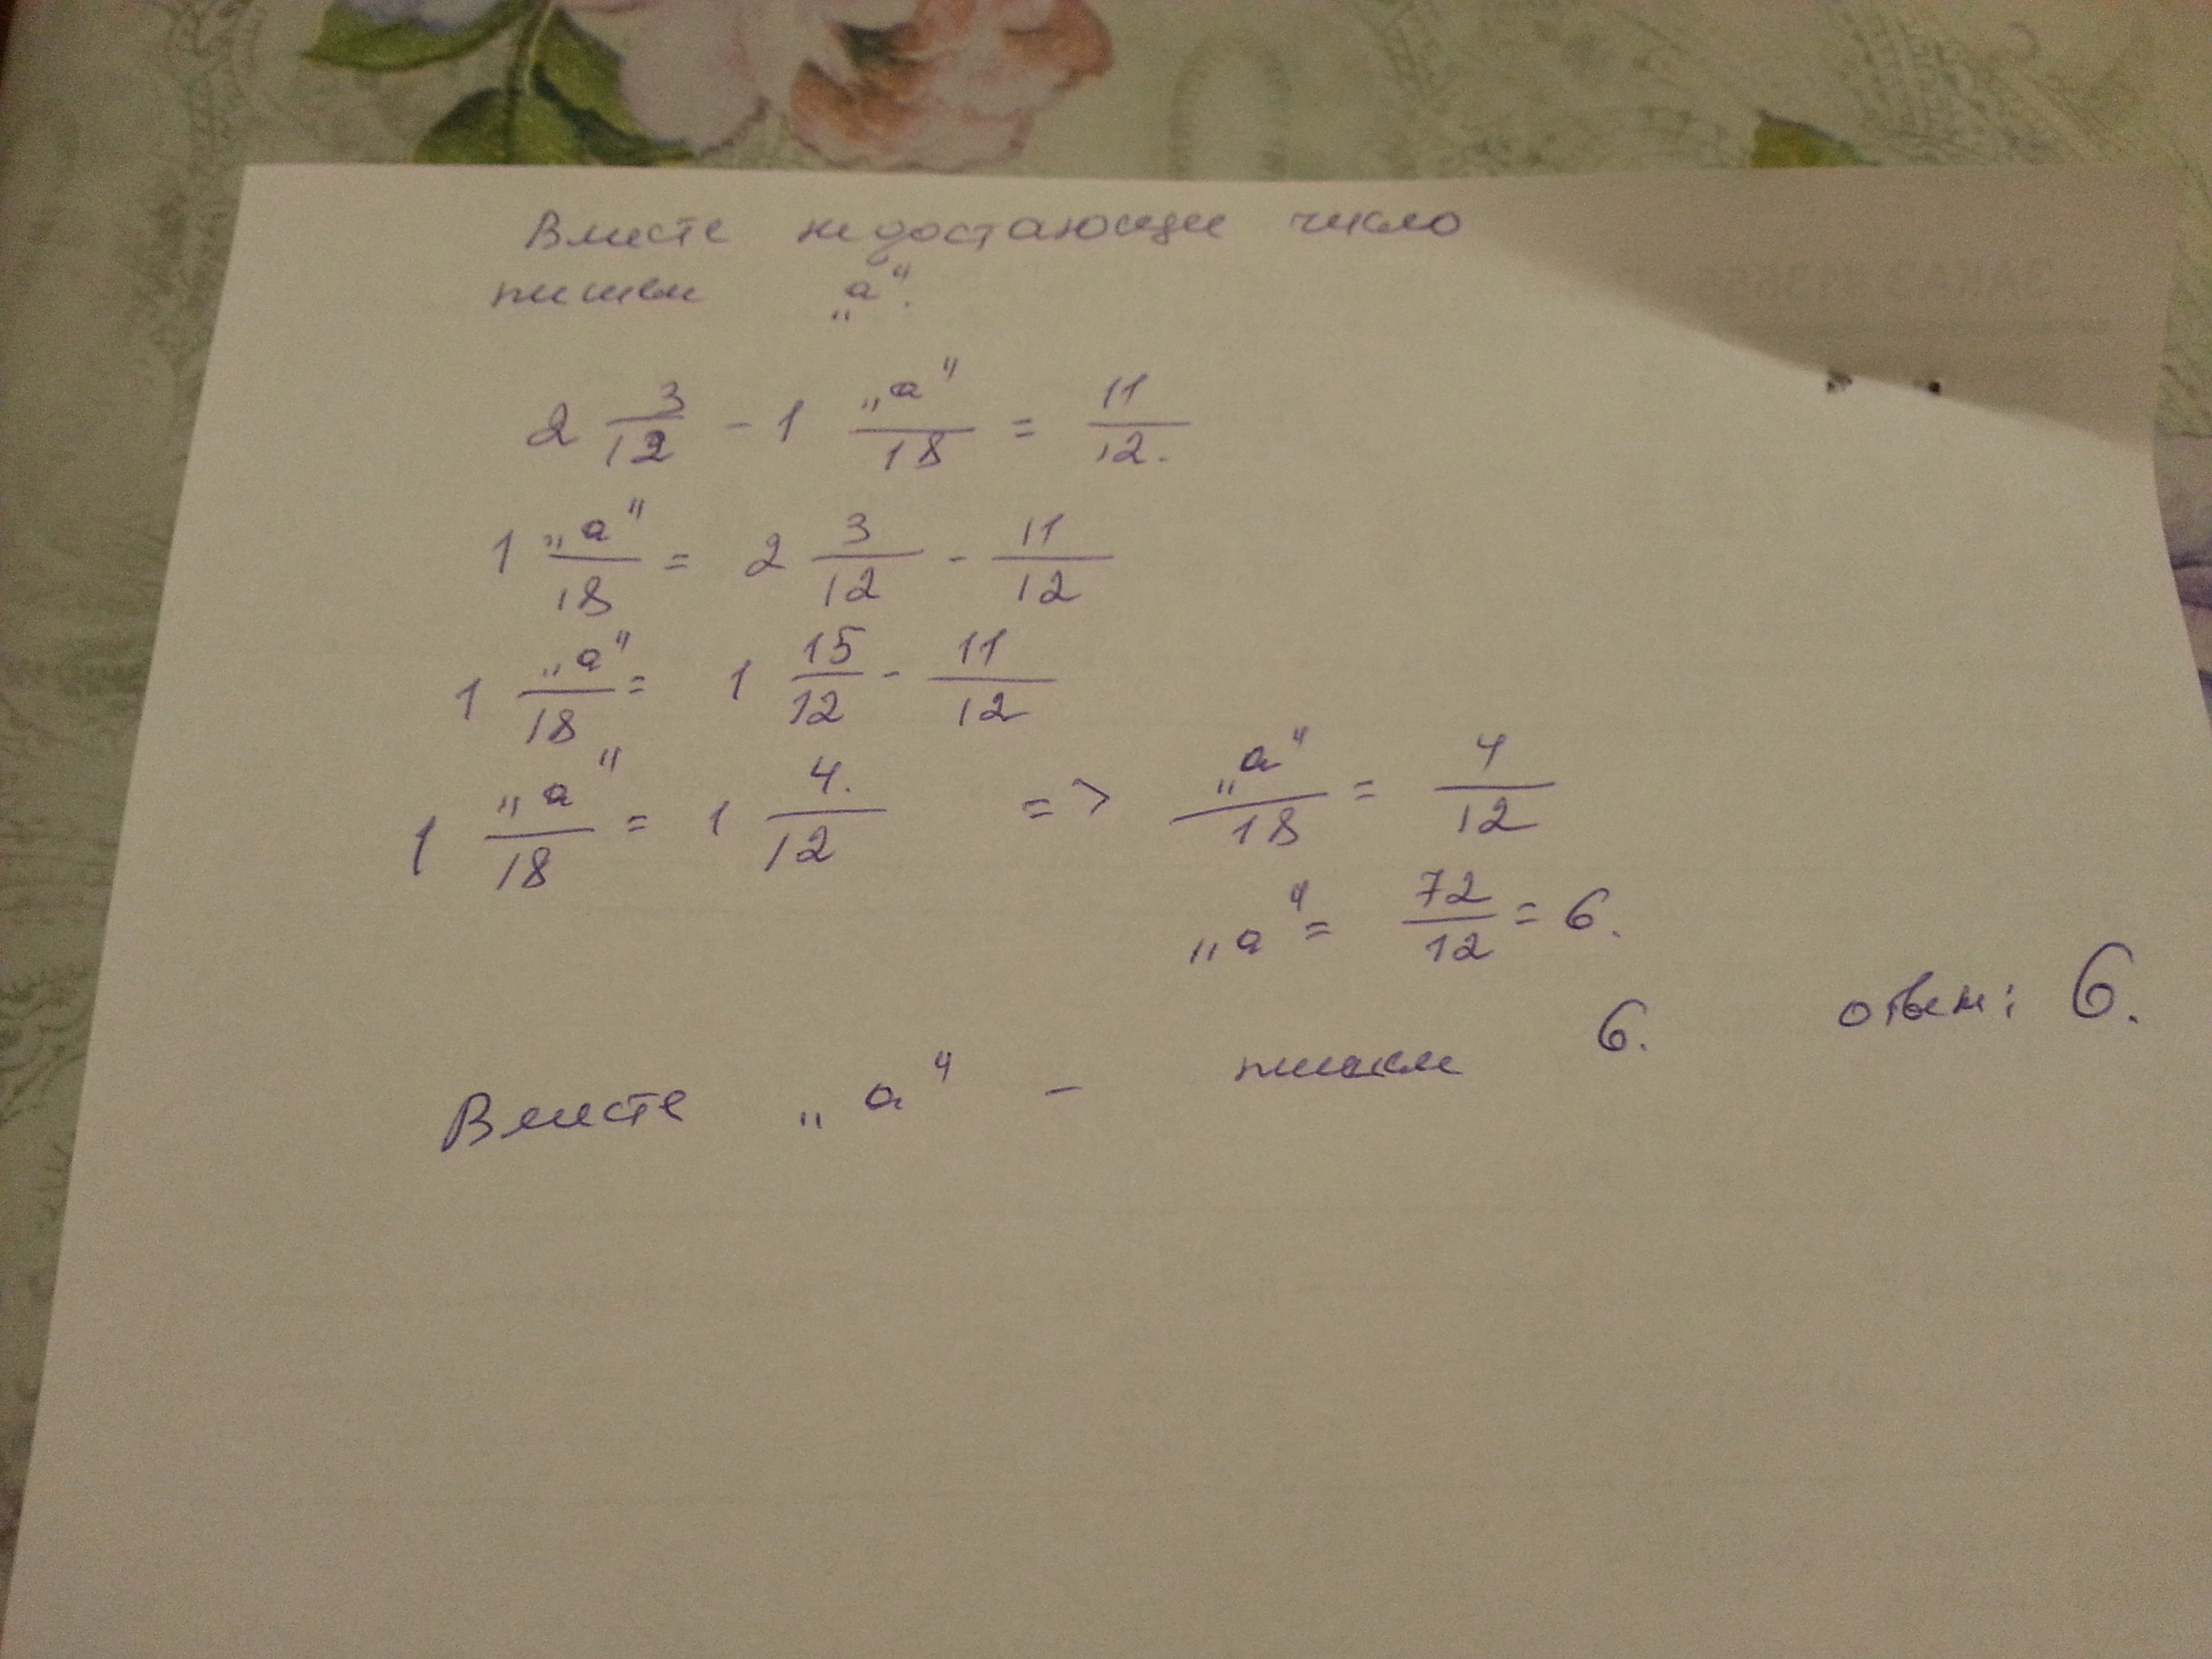 Вместе недостающее число
пишем „а".
2 3/12 - 1 „а"/18 = 11/12.
1 „а"/18 = 2 3/12 - 11/12
1 „а"/18 = 1 15/12 - 11/12
1 „а"/18 = 1 4./12 => „а"/18 = 4/12
„а" = 72/12 = 6.
Вместе „а" - пишем 6. ответ: 6.